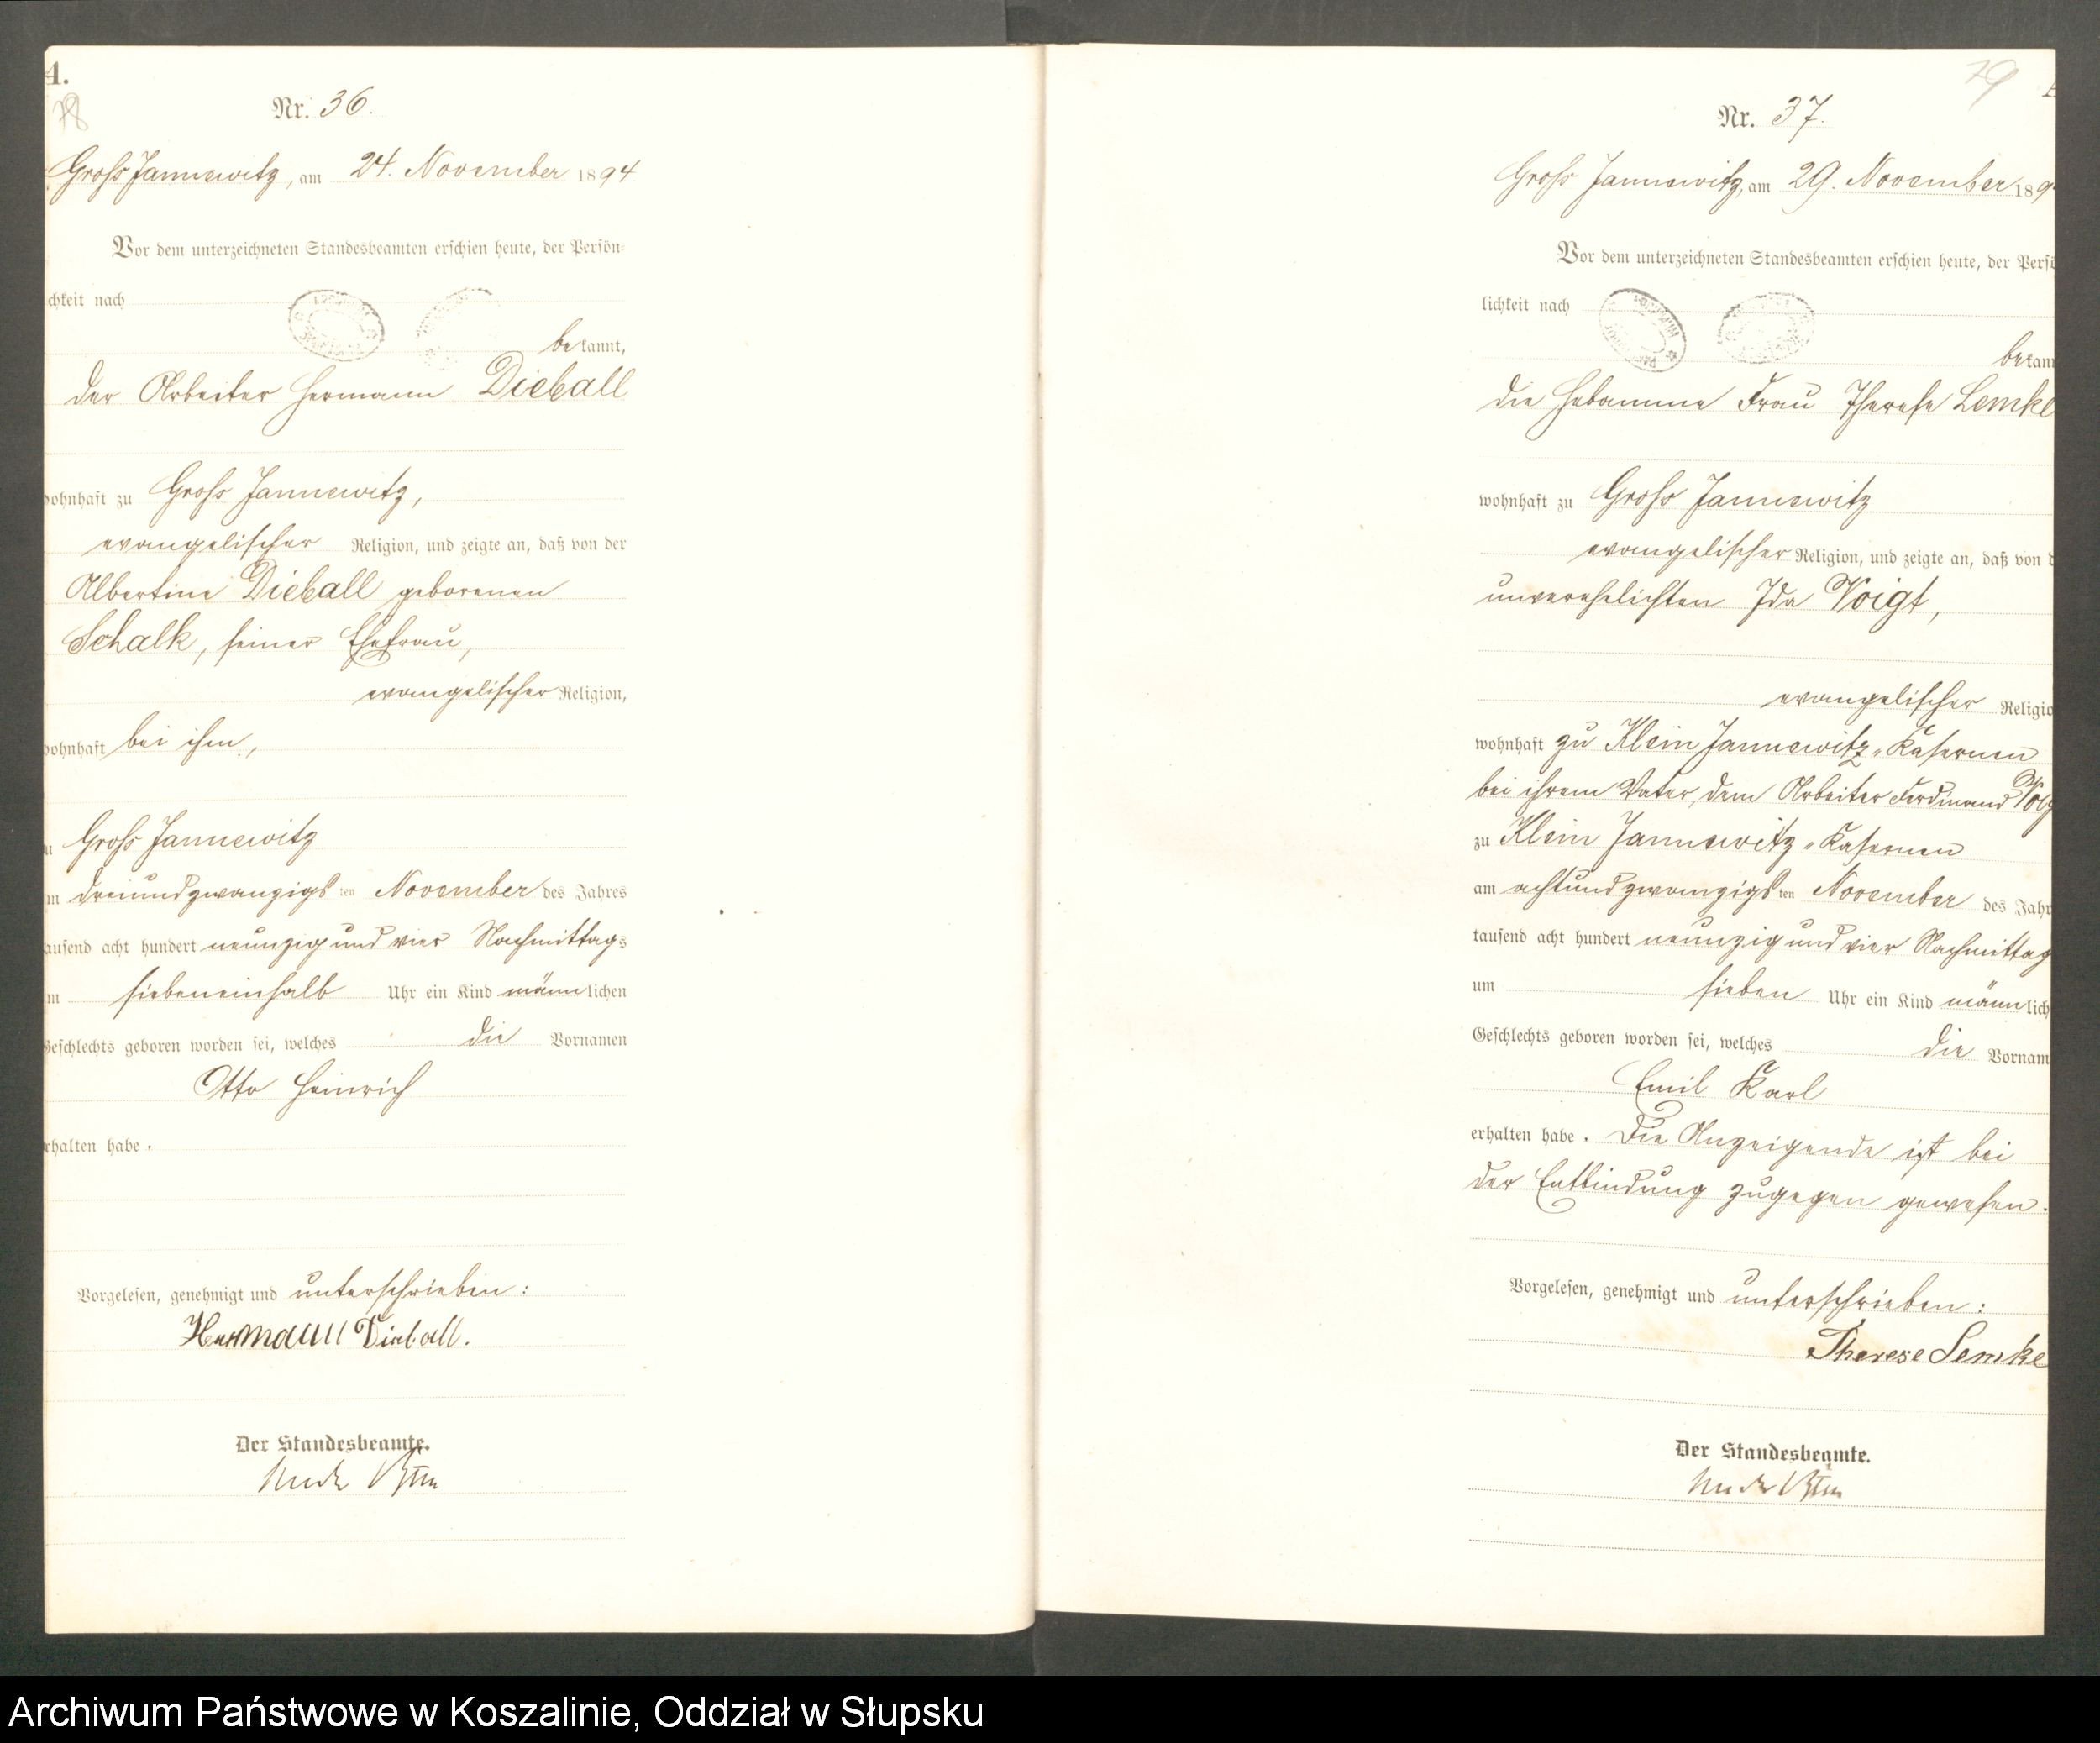 A.
78
Nr. 36.
Groß Jannewitz, am 24. November 1894
Vor dem unterzeichneten Standesbeamten erschien heute, der Persön-
chkeit nach
bekannt,
der Arbeiter Hermann Dieball
wohnhaft zu Groß Jannewitz,
evangelischer Religion, und zeigte an, daß von der
Albertine Dieball geborenen
Schalk, seiner Ehefrau,
evangelischer Religion,
wohnhaft bei ihm,
zu Groß Jannewitz
am dreiundzwanzigsten November des Jahres
tausend acht hundert neunzig und vier Nachmittags
um siebeneinhalb Uhr ein Kind männlichen
Geschlechts geboren worden sei, welches die Vornamen
Otto Heinrich
erhalten habe.
Vorgelesen, genehmigt und unterschrieben:
Hermann Dieball.
Der Standesbeamte.
79
Nr. 37.
Groß Jannewitz, am 29. November 189
Vor dem unterzeichneten Standesbeamten erschien heute, der Persö
lichkeit nach
bekann
die Hebamme Frau Therese Lemke
wohnhaft zu Groß Jannewitz
evangelischer Religion, und zeigte an, daß von d
unverehelichten Ida Voigt,
evangelischer Religio
wohnhaft zu Klein Jannewitz-Kasernen
bei ihrem Vater, dem Arbeiter Ferdinand Voig
zu Klein Jannewitz-Kasernen
am achtundzwanzigsten November des Jahr
tausend acht hundert neunzig und vier Nachmittag
um sieben Uhr ein Kind männlich
Geschlechts geboren worden sei, welches die Vornam
Emil Karl
erhalten habe. Die Anzeigende ist bei
der Entbindung zugegen gewesen.
Vorgelesen, genehmigt und unterschrieben:
Therese Lemke
Der Standesbeamte.
Archiwum Państwowe w Koszalinie, Oddział w Słupsku